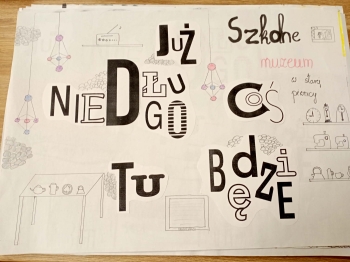 JUŻ
NIEDŁUGO
COŚ
TU BĘDZIE
Szkolne
muzeum
w starej
piwnicy